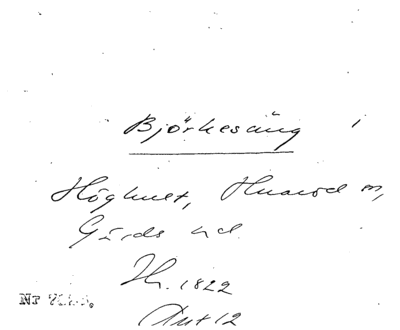 Björkesäng
Höghult, Huaröd sn,
Gärds hd
Hr. 1822
Ant 12
Nr